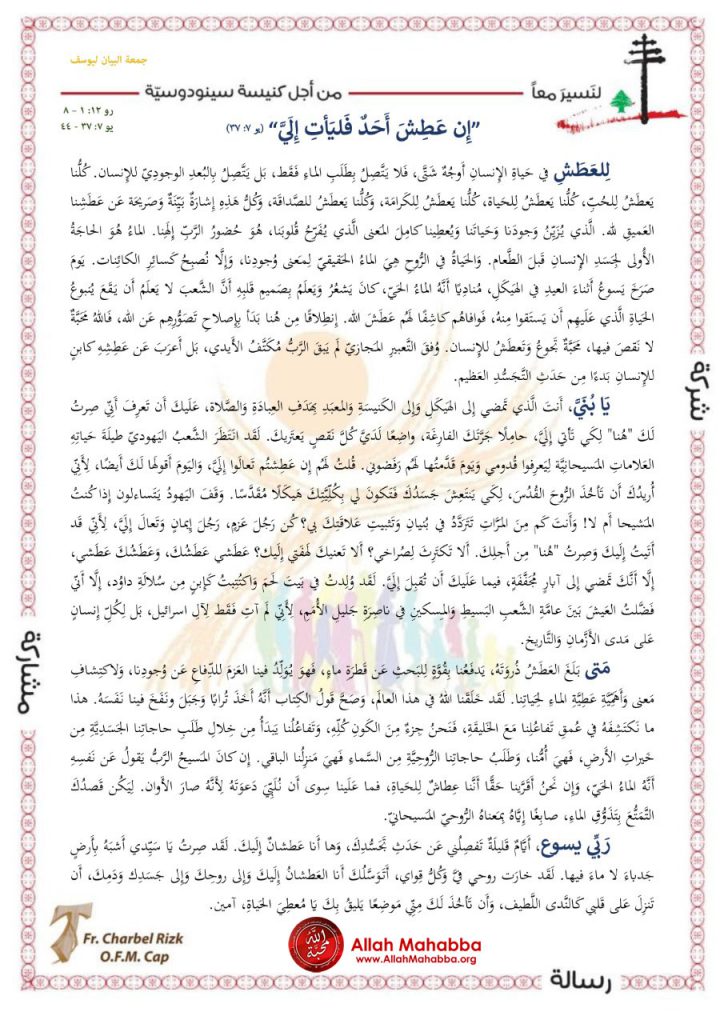 جمعة البيان ليوسف
لنَسيرَ معاً
من أجل كنيسة سينودوسيّة
رو ١٢: ١ – ٨
يو ٧: ٣٧ – ٤٤
”إِن عَطِشَ أَحَدٌ فَليَأتِ إِلَيَّ“ (يو ٧: ٣٧)
لِلعَطَشِ في حَياةِ الإنسانِ أَوجُهٌ شَتَّى، فَلا يَتَّصِلُ بِطَلَبِ الماءِ فَقَط، بَل يَتَّصِلُ بِالبُعدِ الوجودِيّ للإنسان. كُلُّنا
يَعطَشُ لِلحُبّ، كُلُّنا يَعطَشُ لِلحَياة، كُلُّنا يَعطَشُ لِلكَرامَة، وَكُلُّنا يَعطَشُ للصَّداقَة، وَكُلُّ هَذِهِ إِشارَةٌ بَيِّنَةٌ وَصَريحَة عَن عَطَشِنا
العَميقِ لله. الَّذي يُزَيِّنُ وَجودَنا وَحَياتَنا وَيُعطِينا كامِلَ المَعنى الَّذي يُفَرِّحُ قُلوبَنا، هُوَ حُضورُ الرَّبِّ إِلهِنا. الماءُ هُوَ الحاجَةُ
الأُولى لِجَسَدِ الإِنسانِ قَبلَ الطَّعام. وَالحَياةُ في الرُّوحِ هِيَ الماءُ الحَقيقيّ لِمَعنى وُجودِنا، وَإِلَّا نُصبِحُ كَسائِرِ الكائِنات. يَومَ
صَرَخَ يَسوعُ أَثناءَ العيدِ في الهَيكَلِ، مُنادِيًا أَنَّهُ الماءُ الحَيّ، كانَ يَشعُرُ وَيَعلَمُ بِصَميمِ قَلبِهِ أَنَّ الشَّعبَ لا يَعلَمُ أَن يَقَعَ يُنبوعُ
الحَياةِ الَّذي عَلَيهِم أَن يَستَقوا مِنهُ، فَوافاهُم كاشِفًا لَهُم عَطَشَ الله. إِنطِلاقًا مِن هُنا بَدَأَ بِإِصلاحِ تَصَوُّرِهِم عَنِ الله، فَاللهُ مَحَبَّةٌ
لا نَقصَ فيها، مَحَبَّةٌ تَجوعُ وَتَعطَشُ للإِنسان. وُفقَ التَّعبيرِ المَجازيّ لَم يَبقَ الرَّبُّ مُكَتَّفُ الأَيدي، بَل أَعرَبَ عَن عَطَشِهِ كَابنٍ
للإِنسانِ بَدءًا مِن حَدَثِ التَّجَسُّدِ العَظيم.
يَا بُنَيَّ، أَنتَ الَّذي تَمضي إِلى الهَيكَلِ وَإِلى الكَنيسَةِ وَالمَعبَدِ بِهَدَفِ العِبادَةِ وَالصَّلاة، عَلَيكَ أَن تَعرِفَ أَنِّي صِرتُ
لَكَ "هُنا" لِكَي تَأتي إِلَيَّ، حامِلًا جَرَّتَكَ الفارِغَة، واضِعًا لَدَيَّ كُلَّ نَقصٍ يَعتَريك. لَقَد انتَظَرَ الشَّعبُ اليَهوديّ طيلَةَ حَياتِهِ
العَلاماتِ المَسيحانِيَّة لِيَعرِفوا قُدومي وَيَومَ قَدَّمتُها لَهُم رَفَضوني. قُلتُ لَهُم إِن عَطِشتُم تَعالَوا إِلَيَّ، وَاليَومَ أَقولُها لَكَ أَيضًا، لِأَنِّي
أُريدُكَ أَن تَأخُذَ الرُّوحَ القُدُسَ، لِكَي يَنتَعِشَ جَسَدُكَ فَتَكونَ لي بِكُلِّيَّتِكَ هَيكَلًا مُقَدَّسًا. وَقَفَ اليَهودُ يَتَساءلون إِذا كُنتُ
المَشيحا أَم لا! وَأَنتَ كَم مِنَ المَرَّاتِ تَتَرَدَّدُ في بُنيانِ وَتَثبيتِ عَلاقَتِكَ بي؟ كُن رَجُلَ عَزمٍ، رَجُلَ إِيمانٍ وَتَعالَ إِلَيَّ، لِأَنِّي قَد
أَتَيتُ إِلَيكَ وَصِرتُ "هُنا" مِن أَجلِكَ. أَلا تَكتَرِثَ لِصُراخي؟ أَلا تَعنيكَ لَهفَتي إِلَيك؟ عَطَشي عَطَشُكَ، وَعَطَشُكَ عَطَشي،
إِلَّا أَنَّكَ تَمضي إِلى آبارٍ مُجَفَّفَةٍ، فيما عَلَيكَ أَن تُقبِلَ إِلَيَّ. لَقَد وُلِدتُ في بَيتَ لَحمَ وَاكتُتِبتُ كَابنٍ مِن سُلالَةِ داوُد، إِلَّا أَنِّي
فَضَّلتُ العَيشَ بَينَ عامَّةِ الشَّعبِ البَسيطِ وَالمِسكينِ في ناصِرَةِ جَليلِ الأُمَمِ، لِأَنِّي لَم آتِ فَقَط لِآلِ اسرائيل، بَل لِكُلِّ إِنسانٍ
عَلى مَدى الأَزمانِ وَالتَّاريخ.
مَتى بَلَغَ العَطَشُ ذُروَتَهُ، يَدفَعُنا بِقُوَّةٍ لِلبَحثِ عَن قَطرَةِ ماءٍ، فَهوَ يُوَلِّدُ فينا العَزمَ للدِّفاعِ عَن وُجودِنا، وَلاكتِشافِ
مَعنى وَأَهَمِّيَّةِ عَطِيَّةِ الماءِ لِحَياتِنا. لَقَد خَلَقَنا اللهُ في هذا العالَم، وَصَحَّ قَولُ الكِتابِ أَنَّهُ أَخَذَ تُرابًا وَجَبَلَ وَنَفَخَ فينا نَفَسَهُ. هذا
ما نَكتَشِفُهُ في عُمقِ تَفاعُلِنا مَعَ الخَليقَةِ، فَنَحنُ جُزءٌ مِنَ الكَونِ كُلِّهِ، وَتَفاعُلُنا يَبدَأُ مِن خِلالِ طَلَبِ حاجاتِنا الجَسَدِيَّةِ مِن
خَيراتِ الأَرضِ، فَهيَ أُمُّنا، وَطَلَبُ حاجاتِنا الرُّوحِيَّةِ مِنَ السَّماءِ فَهيَ مَنزِلُنا الباقي. إِن كانَ المَسيحُ الرَّبُّ يَقولُ عَن نَفسِهِ
أَنَّهُ الماءُ الحَيّ، وَإِن نَحنُ أَقرَّينا حَقًّا أَنَّنا عِطاشٌ للحَياةِ، فَما عَلَينا سِوى أَن نُلَبِّيَ دَعوَتَهُ لِأَنَّهُ صارَ الأَوان. لِيَكُن قَصدُكَ
التَّمَتُّعَ بِتَذَوُّقِ الماءِ، صابِغًا إِيَّاهُ بِمَعناهُ الرُّوحيّ المَسيحانيّ.
رَبِّي يسوع، أَيَّامٌ قَليلَةٌ تَفصِلُني عَن حَدَثِ تَجَسُّدِكَ، وَها أَنا عَطشانٌ إِلَيكَ. لَقَد صِرتُ يا سَيِّدي أَشبَهُ بِأَرضٍ
جَدباءَ لا ماءَ فيها. لَقَد خارَت روحي فيَّ وَكُلُّ قِواي، أَتَوَسَّلُكَ أَنا العَطشانُ إِلَيكَ وَإِلى روحِكَ وَإِلى جَسَدِكَ وَدَمِكَ، أَن
تَنزِلَ عَلى قَلبي كَالنَّدى اللَّطيف، وَأَن تَأخُذَ لَكَ مِنِّي مَوضِعًا يَليقُ بِكَ يَا مُعطِيَ الحَياةِ، آمين.
شركة
مشاركة
رسالة
Fr. Charbel Rizk
O.F.M. Cap
الله محبّة
Allah Mahabba
www.AllahMahabba.org